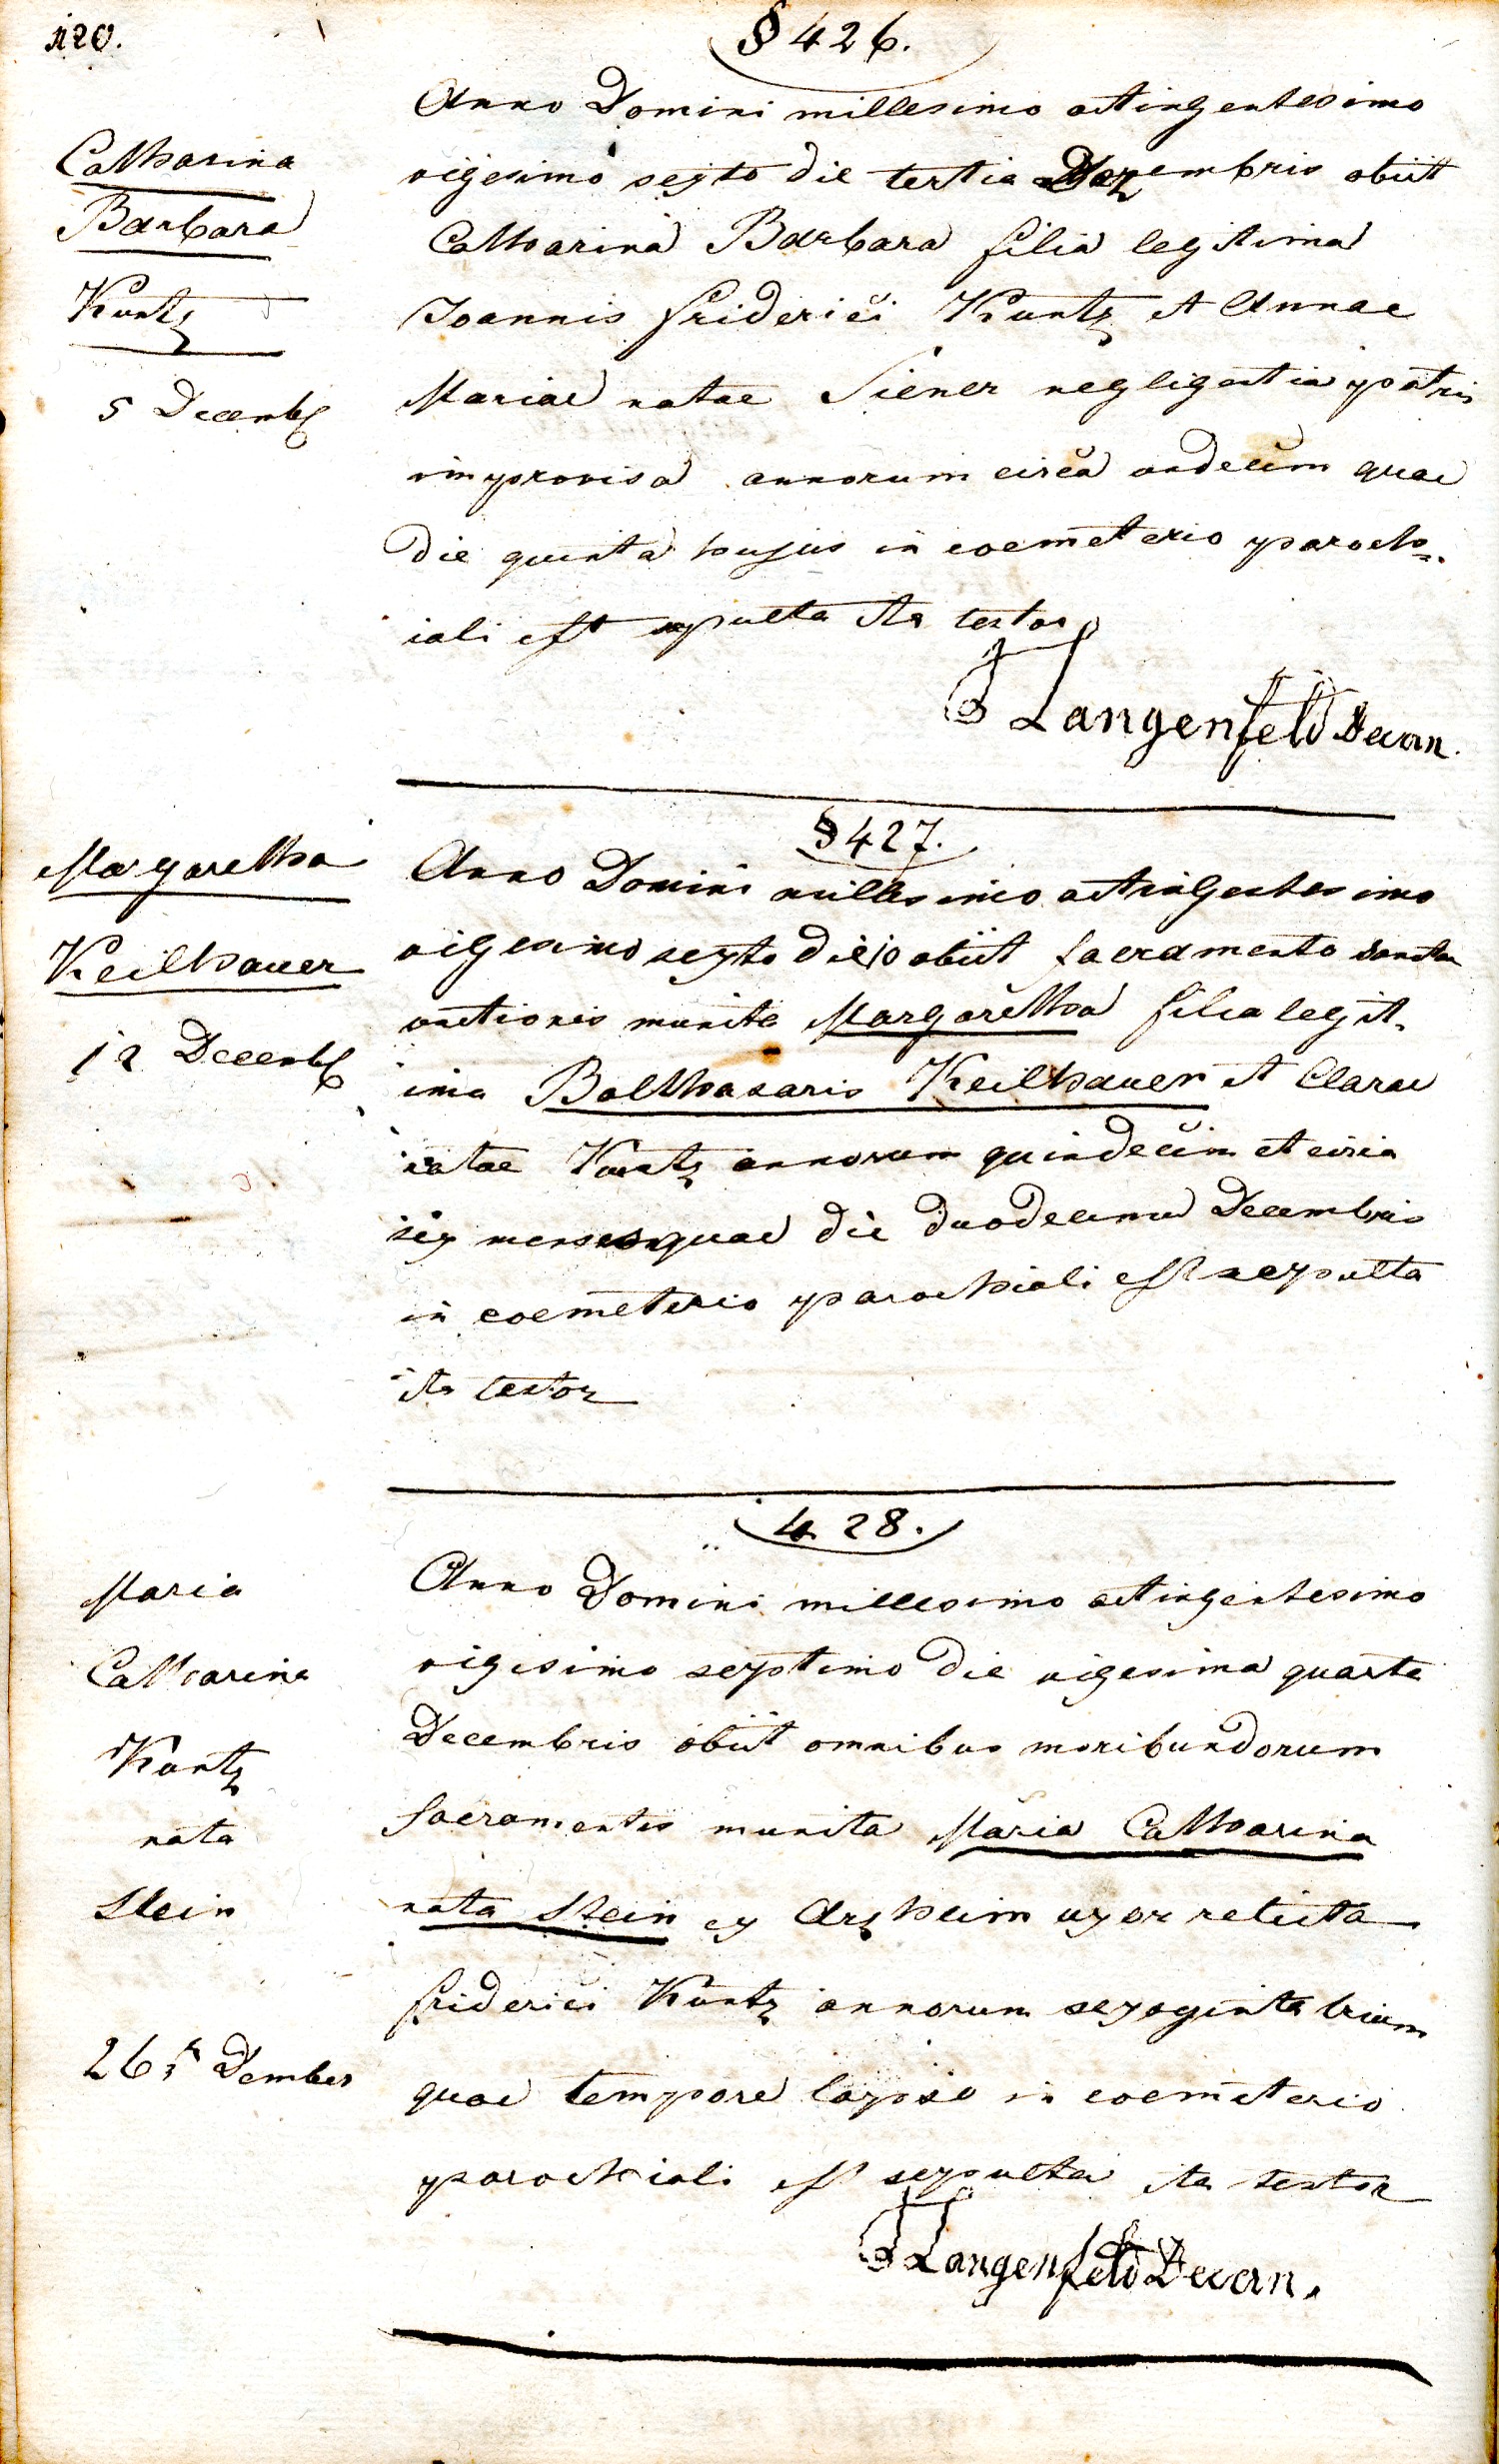 120.
§ 426.
Catharina
Barbara
Kuntz
5 Decembr
Anno Domini millesimo octingentesimo
vigesimo sexto die tertia Dezembris obiit
Catharina Barbara filia legitima
Joannis friderici Kuntz et Annae
Mariae natae Siener negligentia patris
improvisa annorum circa undecim quae
die quinta hujus in coemeterio paroch=
iali est sepulta ita testor
Langenfeld Decan.
§ 427.
Margaretha
Keilhauer
12 Decembr
Anno Domini millesimo octingentesimo
vigesimo sexto die 10 obiit sacramento sanctae
unctionis munita Margaretha filia legit-
ima Balthasaris Keilhauer et Clarae
natae Kuntz annorum quindecim et circa
sex menses quae die duodecima Decembris
in coemeterio parochiali est sepulta
ita testor
428.
Maria
Catharina
Kuntz
nata
Stein
26 Dember
Anno Domini millesimo octingentesimo
vigisimo septimo die vigesima quarta
Decembris obiit omnibus moribundorum
sacramentis munita Maria Catharina
nata Stein ex Arzheim uxor relicta
friderici Kuntz annorum sexaginta trium
quae tempore lapso in coemeterio
parochiali est sepulta ita testor
Langenfeld Decan.